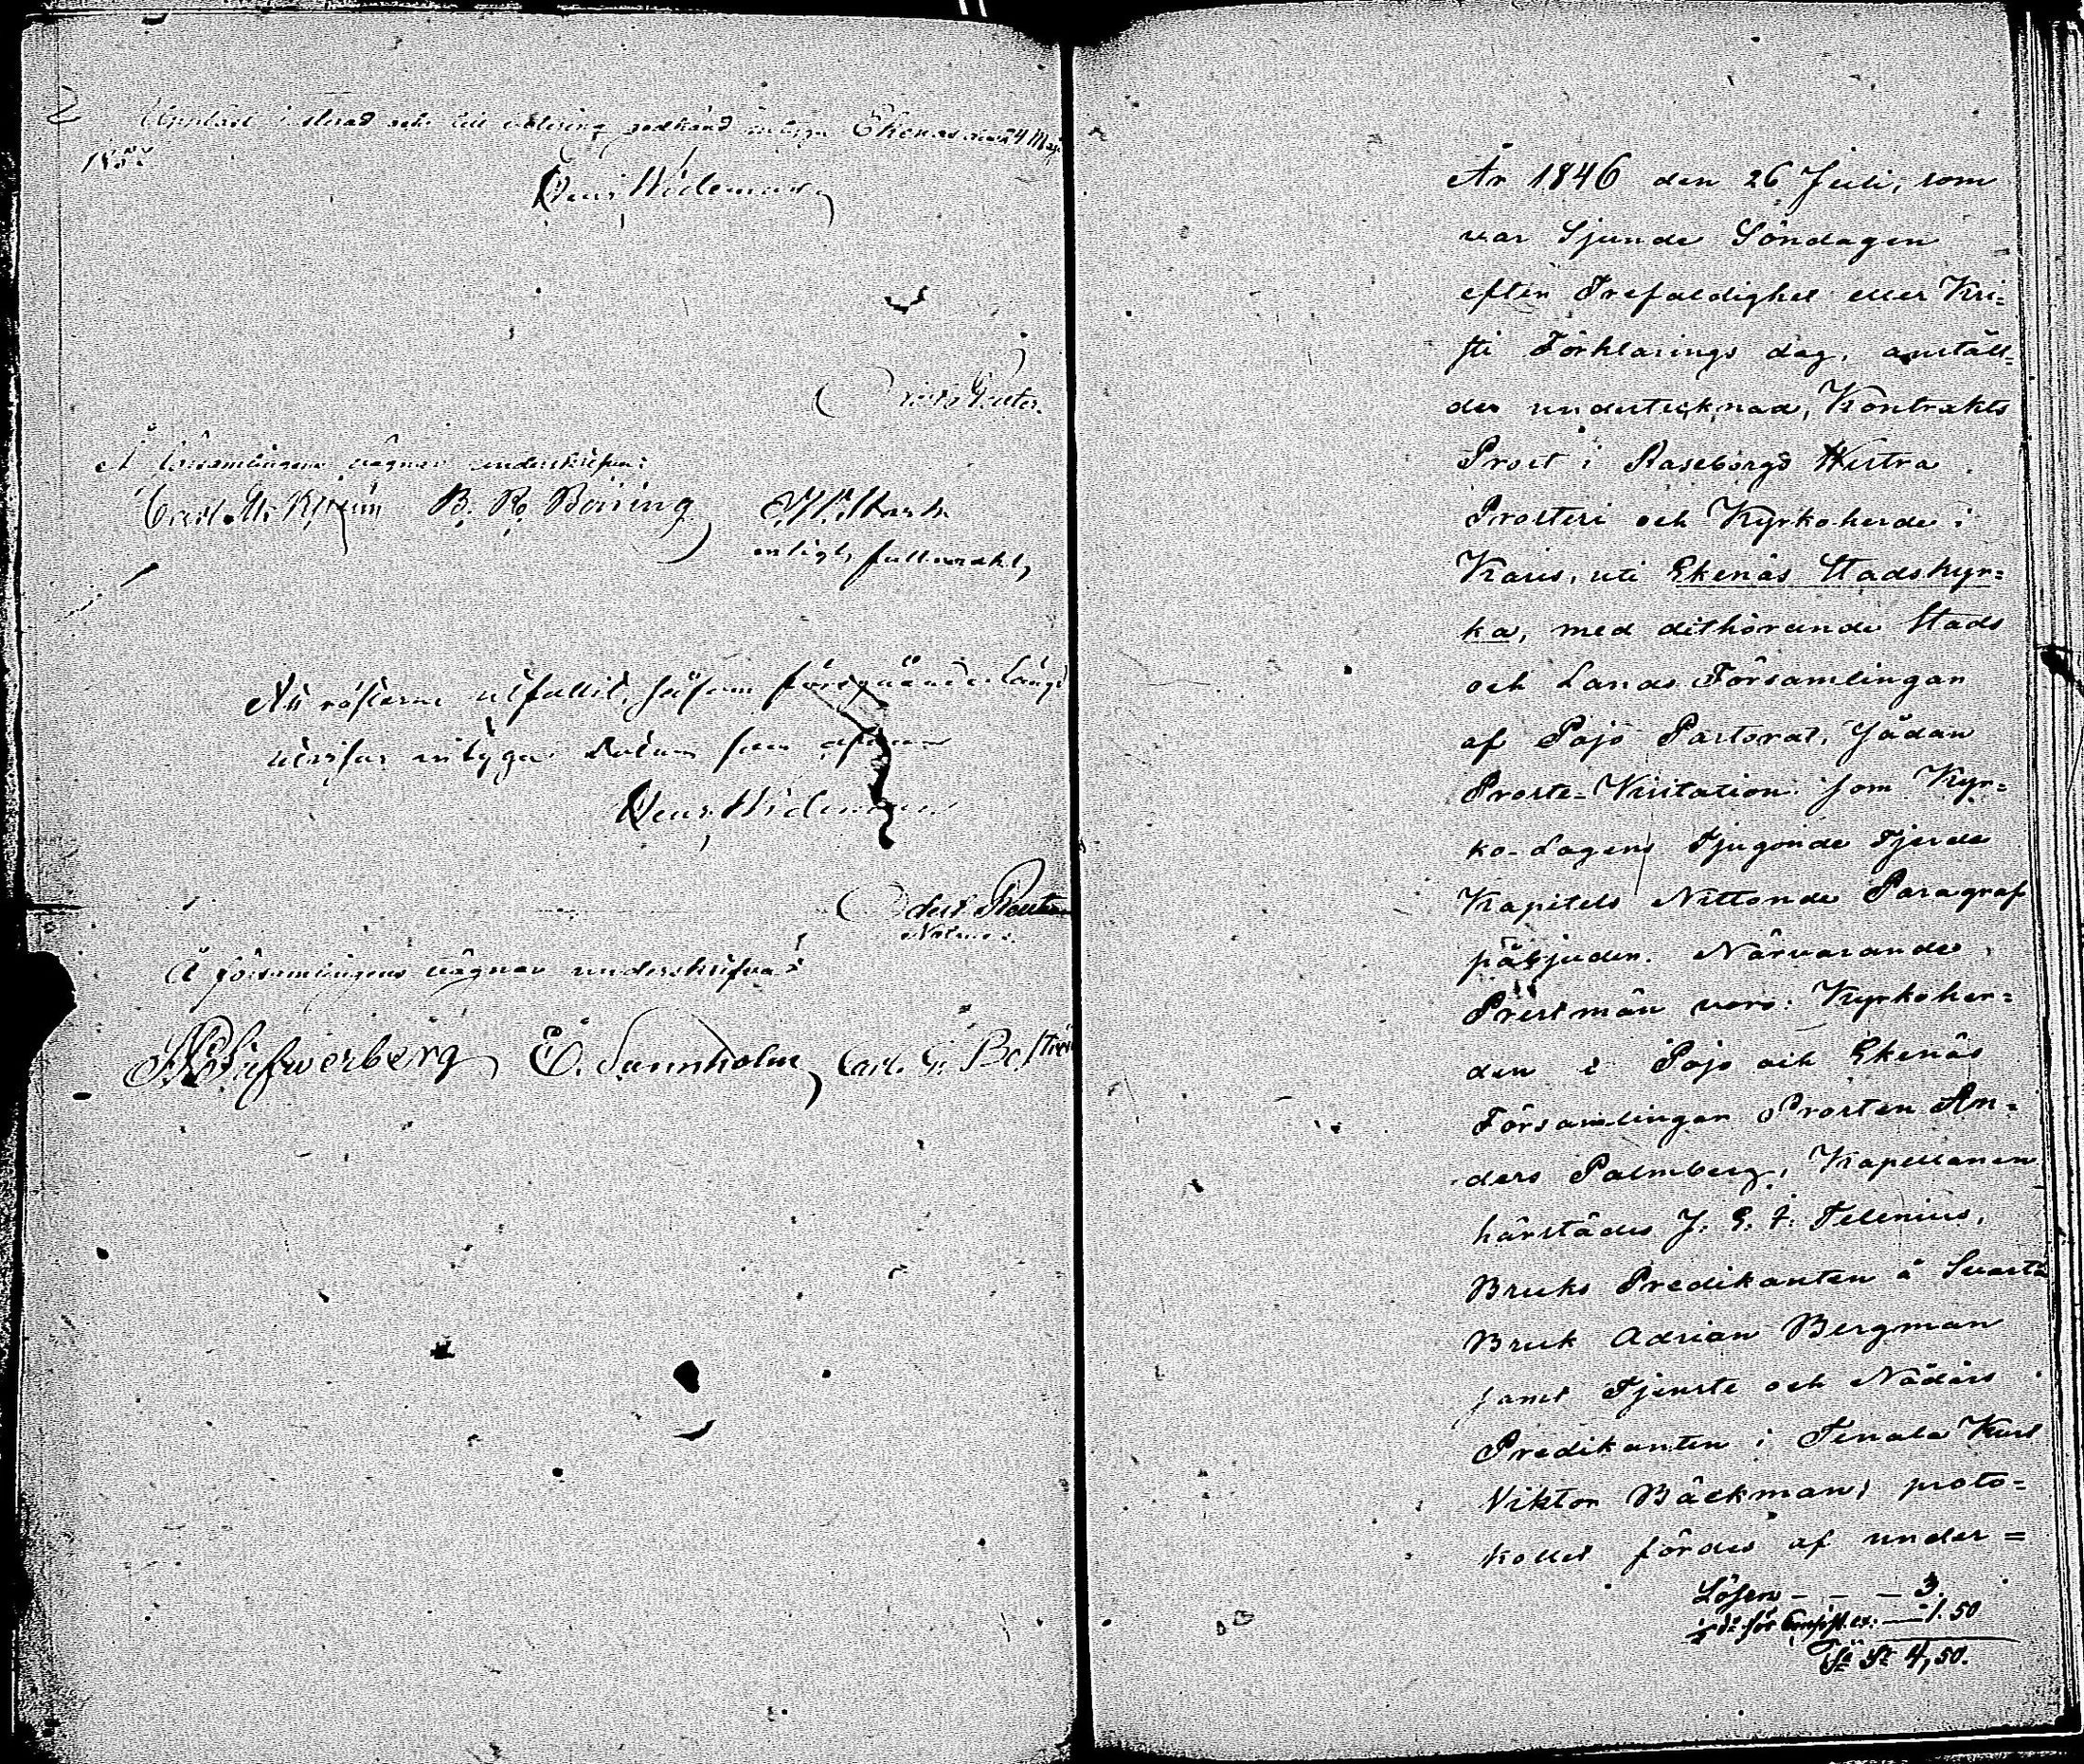 Uppläst i stad och till välering godkänd intyga Ekenäs den 24 Maj
Henr. Wideman
Reuter.
Å församlingens vägnar underskrifva:
B. R. Böning
enligt fullmakt,
Att rösterne utfallit, såsom föregående Längd
utvisar intygar Datum som ofvan
Henr. Wideman
Reuter
Notarie.
Å församlingens vägnar underskrifva:
Silfverberg E. Sannholm Carl G. Boström
År 1846 den 26 Juli, som
var Sjunde Söndagen
efter Trefaldighet eller Kri=
sti Förklarings dag, anställ=
des undertecknad, Kontrakts
Prost i Raseborgs Westra
Prosteri och Kyrkoherde i
Karis, uti Ekenäs Stadskyr=
ka, med dithörande Stads
och Lands Församlingar
af Pojo Pastorat, Sådan
Proste-Visitation som Kyr=
ko-Lagens Tjugonde Fjerde
Kapitels Nittonde Paragraf
påbjuder. Närvarande
Prestmän voro: Kyrkoher=
den i Pojo och Ekenäs
Församlingar Prosten An=
ders Palmberg, Kapellanen
härstädes J. E. F. Telenius,
Bruks Predikanten å Svartå
Bruk Adrian Bergman
samt Tjenste och Nådårs
Predikanten i Tenala Karl
Viktor Bäckman; proto=
kollet fördes af under=
Lösen - - - 3.
½ d:o för 1. 50
S:a S:r 4,50.